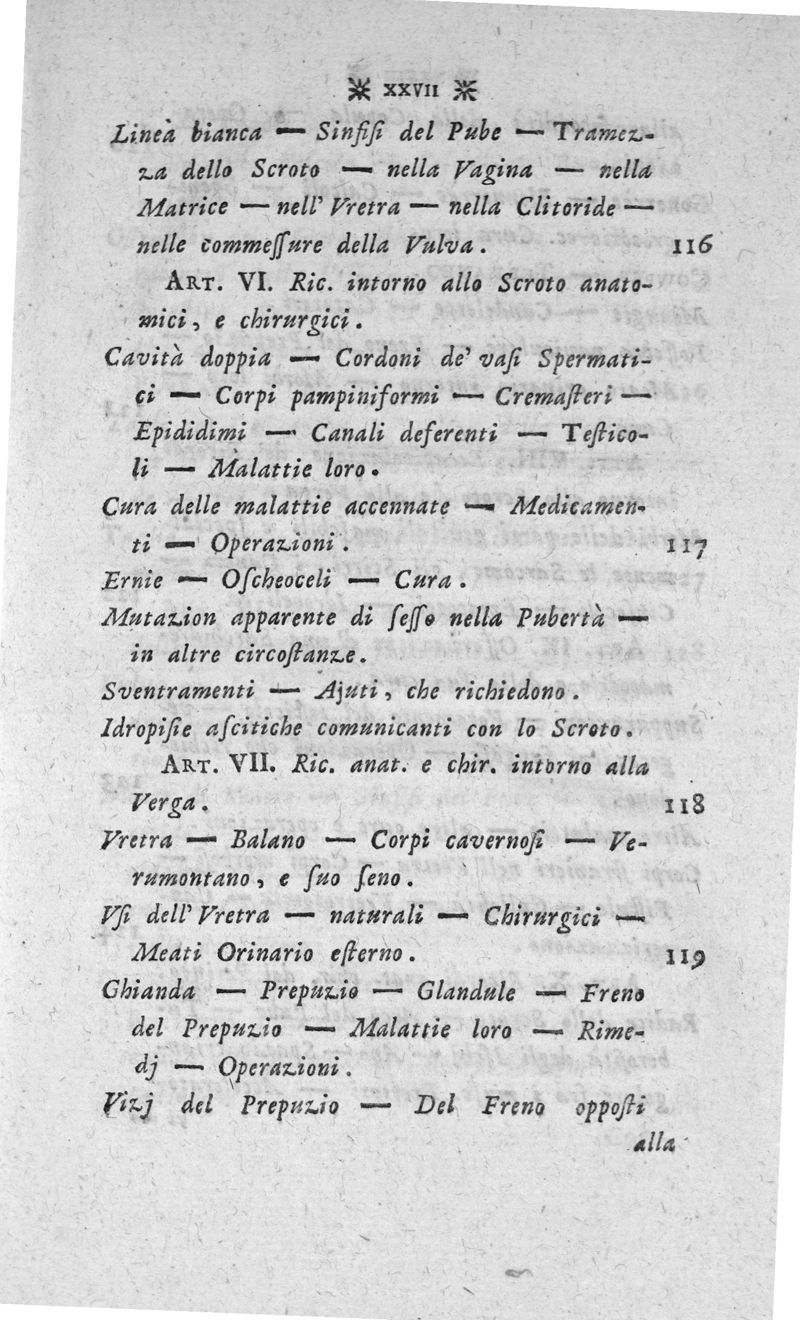 ※ XXVII ※
Lineà bianca — Sinfiſi del Pube — Tramez-
za dello Scroto — nella Vagina — nella
Matrice — nell' Vretra — nella Clitoride —
nelle commeſſure della Vulva. 116
ART. VI. Ric. intorno allo Scroto anato-
mici, e chirurgici.
Cavità doppia — Cordoni de' vaſi Spermati-
ci — Corpi pampiniformi — Cremaſteri —
Epididimi — Canali deferenti — Teſtico-
li — Malattie loro.
Cura delle malattie accennate — Medicamen-
ti — Operazioni. 117
Ernie — Oſcheoceli — Cura.
Mutazion apparente di ſeſſo nella Pubertà —
in altre circoſtanze.
Sventramenti — Ajuti, che richiedono.
Idropiſie aſcitiche comunicanti con lo Scroto.
ART. VII. Ric. anat. e chir. intorno alla
Verga. 118
Vretra — Balano — Corpi cavernoſi — Ve-
rumontano, e ſuo ſeno.
Vſi dell' Vretra — naturali — Chirurgici —
Meati Orinario eſterno. 119
Ghianda — Prepuzio — Glandule — Freno
del Prepuzio — Malattie loro — Rime-
dj — Operazioni.
Vizj del Prepuzio — Del Freno oppoſti
alla